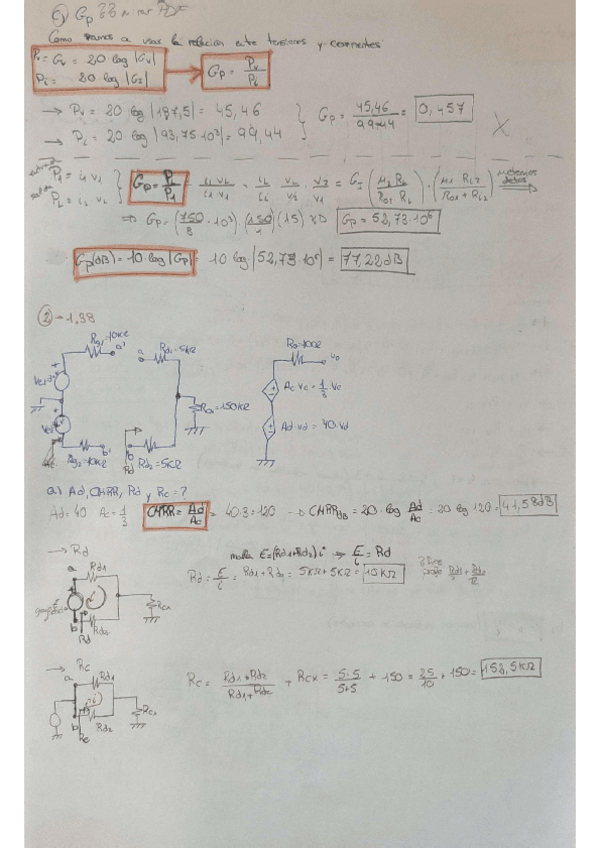 c) Gp
Como vamos a usar la relación entre tensiones y corrientes
Pv = Gv = 20·log|Gv|
Pi = 20·log|GI|
Gp = Pv/Pi
→ Pv = 20 log|187,5| = 45,46
→ Pi = 20 log|93,75·10³| = 99,44
Gp = 45,46/99,44 = 0,457
X
P1 = i1 v1
PL = iL vL
Gp = PL/P1
⇒ Gp = (750/8·10³)·(150/1)(15)
Gp = 52,73·10⁶
Gp(dB) = 10·log|Gp| = 10 log|52,73·10⁶| = 77,22dB
② → 1.38
Rg1=10KΩ a' a Rd1=5KΩ
Ro=100Ω vo
Ac vc = 1/3 vc
Rcx=150KΩ
Ad·vd = 40·vd
Rg2=10KΩ b' b Rd2=5KΩ
Rd
a) Ad, CMRR, Rd y Rc = ?
Ad=40 Ac=1/3 CMRR = Ad/Ac = 40·3=120 → CMRRdB = 20·log Ad/Ac = 20 log 120 = 41,58dB
→ Rd
malla E=(Rd1+Rd2)i → E/i = Rd
a Rd1
Rd = E/i = Rd1+Rd2 = 5KΩ+5KΩ = 10KΩ
i
Rcx
b Rd2
Rd
→ Rc
a Rd1
Rc = Rd1·Rd2/Rd1+Rd2 + Rcx = 5·5/5+5 + 150 = 25/10 + 150 = 152,5KΩ
i
Rcx
b Rd2
Rc